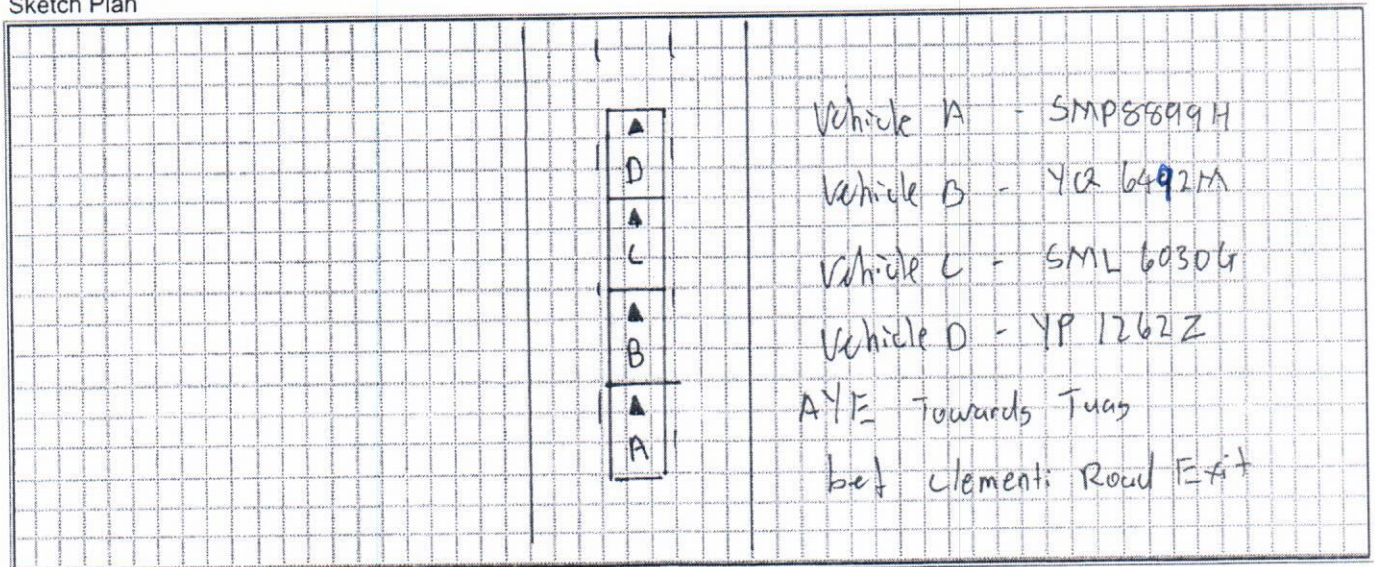 Sketch Plan
D
C
B
A
Vehicle A - SMP8899H
Vehicle B - YQ 6492M
Vehicle C - SML 6030G
Vehicle D - YP 1262Z
AYE Towards Tuas
bef Clementi Road Exit